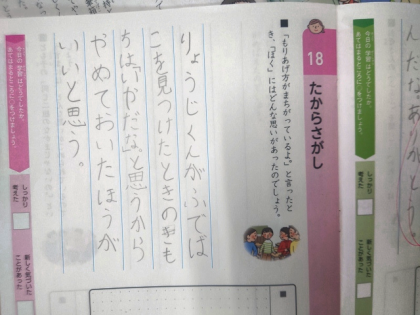 18 たからさがし
■「もりあげ方がまちがっているよ。」と言ったと
き、「ぼく」にはどんな思いがあったのでしょう。
りょうじくんがふでば
こを見つけたときのきも
ちはいやだな。と思うから
やめておいたほうが
いいと思う。
しっかり
考えた
新しく気づいた
ことがあった
しっかり
考えた
新しく気づいた
ことがあった